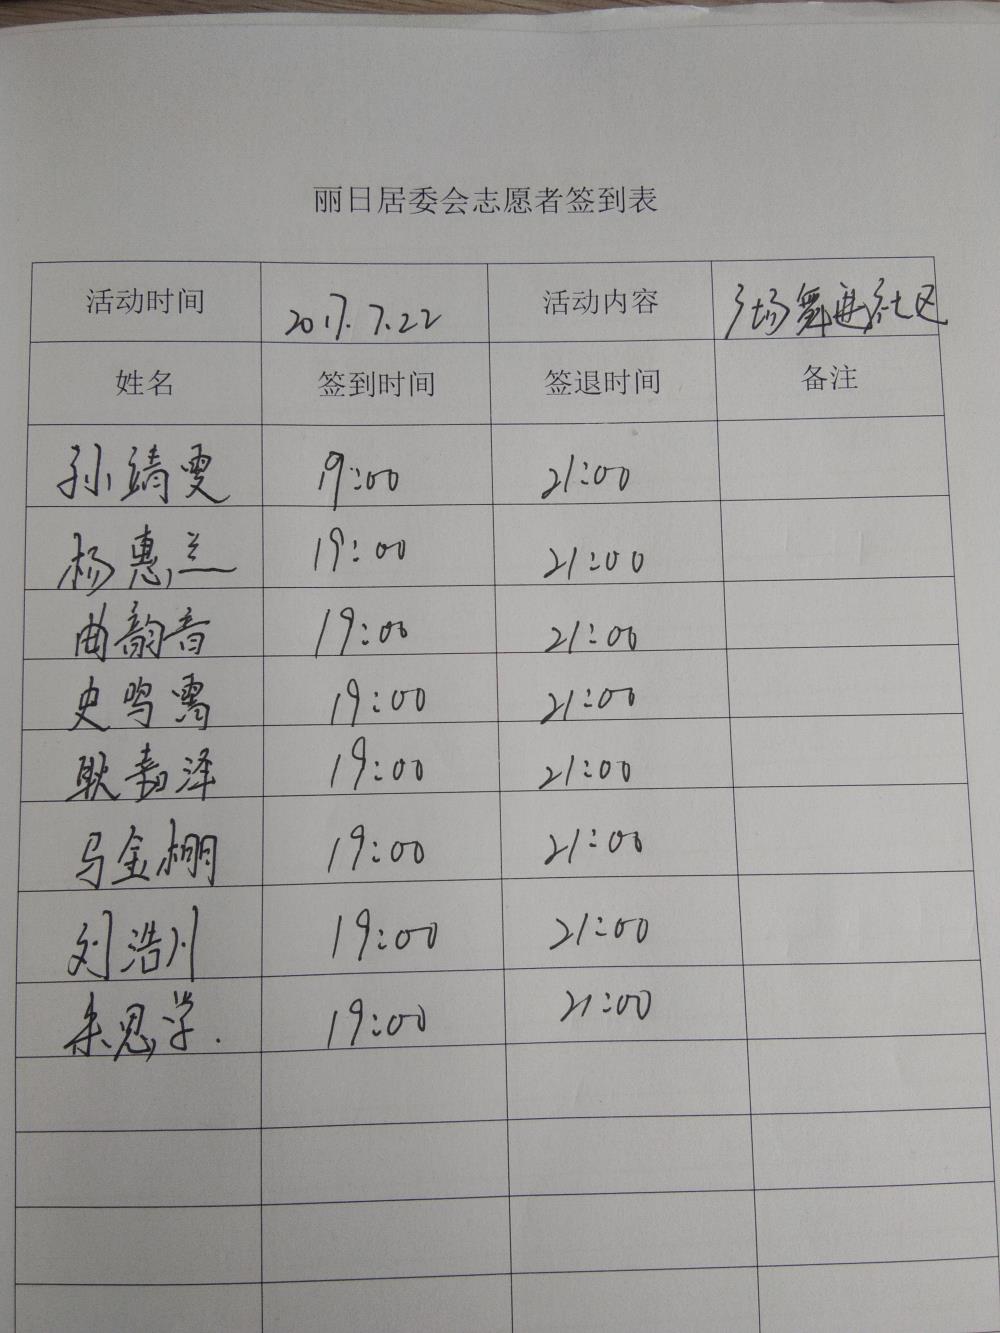 丽日居委会志愿者签到表
活动时间 2017.7.22 活动内容 广场舞进社区
姓名 签到时间 签退时间 备注
孙靖雯 19:00 21:00
杨惠兰 19:00 21:00
曲韵音 19:00 21:00
史鸣 19:00 21:00
耿嘉泽 19:00 21:00
马金棚 19:00 21:00
刘浩川 19:00 21:00
朱思学. 19:00 21:00